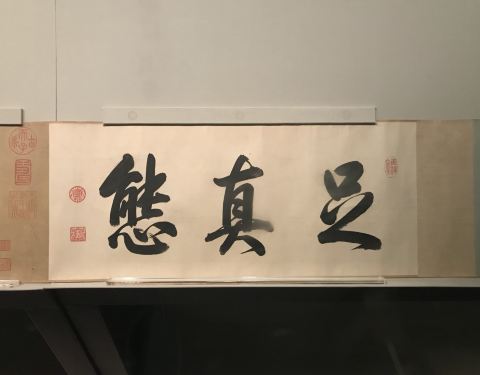 足真態